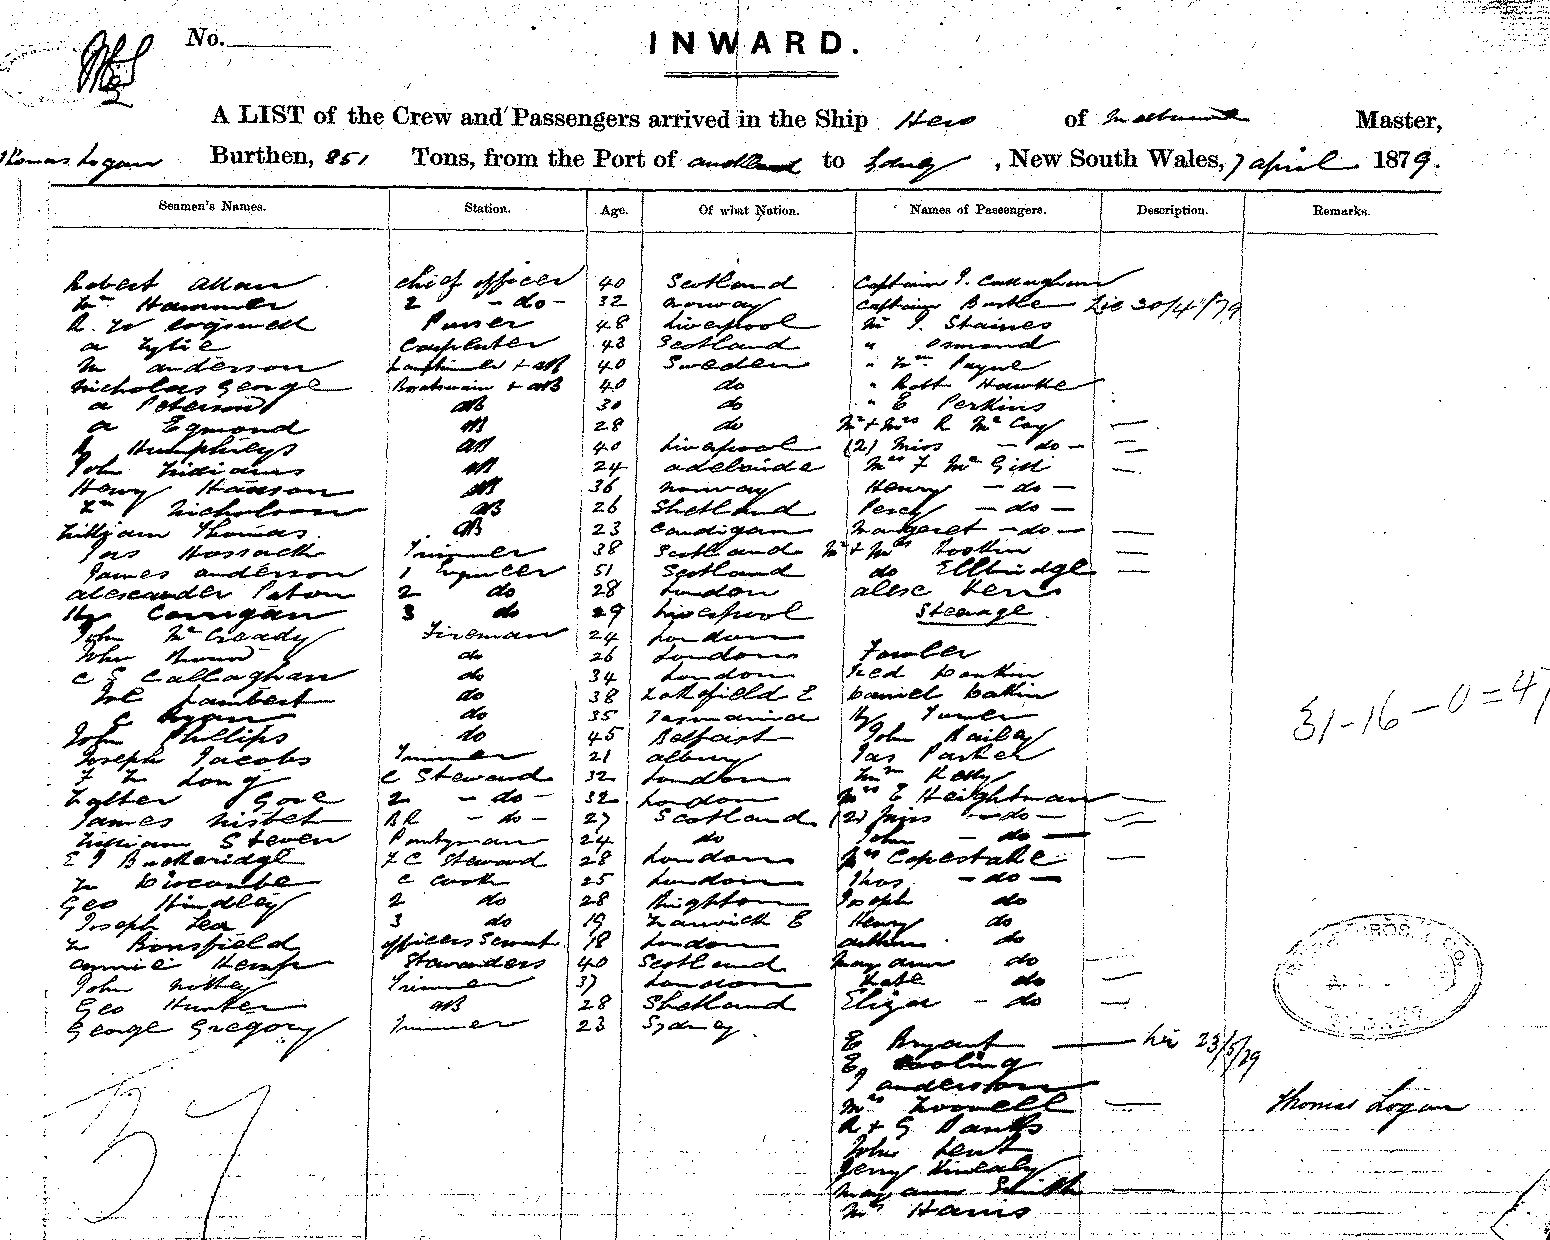 No.
INWARD.
A LIST of the Crew and Passengers arrived in the Ship Hero of Melbourne Master,
Thomas Logan Burthen, 851 Tons, from the Port of Auckland to Sydney, New South Wales, 7 April 1879.
Seamen's Names. Station. Age. Of what Nation. Names of Passengers. Description. Remarks.
Robert Allan chief officer 40 Scotland Captain J. Callaghan
Wm Hammer 2 - do - 32 Norway Captain Burke 30/4/79
R. W Cogswell Purser 48 Liverpool Mr J. Staines
A Lylie Carpenter 43 Scotland " Osmond
M Anderson Lamptrimer + AB 40 Sweden " Wm Payne
Nicholas George Boatswain + AB 40 do " Robt Hawke
A Peterson AB 30 do " E Perkins
A Egmond AB 28 do Mr + Mrs R McCay —
R Humphreys AB 40 Liverpool (2) Miss - do -
John AB 24 Adelaide Mrs F McGill —
Henry Hanson AB 36 Norway Henry - do -
Wm Nicholson AB 26 Shetland Percy - do -
William Thomas AB 23 Cardigan Margaret - do - —
Jas Hossack Trimmer 38 Scotland Mr + Mrs —
James Anderson 1 Engineer 51 Scotland do Ellbridge —
Alexander Paton 2 do 28 London Alex
Hy Corrigan 3 do 29 Liverpool Steerage
John McCready Fireman 24 London
John do 26 London Fowler
C E Callaghan do 34 London
Lambert do 38 Daniel Dakin
C Ryan do 35 Tasmania Hy
John Phillips do 45 Belfast John Bailey
Joseph Jacobs Trimmer 21 Albury Jas Parker
F W Long C Steward 32 London Wm
Walter Gore 2 - do - 32 London Mrs E Heightman —
James Nisbet BR - do - 27 Scotland (2) Miss - do -
William Steven Pantryman 24 do John - do -
E J Buckeridge F C Steward 28 London Mrs Copestake —
W Discombe C Cook 25 London Thos - do -
Geo Hindley 2 do 28 Brighton Joseph do
Joseph Lea 3 do 19 Harwich E Henry do
W Bonsfield officers Servant 18 London Arthur do
Annie Hemp Stewardess 40 Scotland Mary Ann do —
John Trimmer 37 London Kate do —
Geo Hunter AB 28 Shetland Eliza - do —
George Gregory Trimmer 23 Sydney
E Bryant — 23/5/79
E
J Anderson
Mrs —
R + G Banks
John Lent
Jerry
Mary Ann Smith —
Mrs Harris
31-16-0=47
Thomas Logan
37